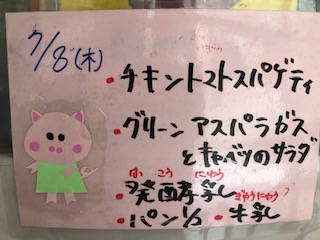 7/8(木)
・チキントマトスパゲティ
・グリーンアスパラガス
とキャベツのサラダ
はっ こう にゅう
・発酵乳 ぎゅうにゅう
・パン1/2 ・牛乳